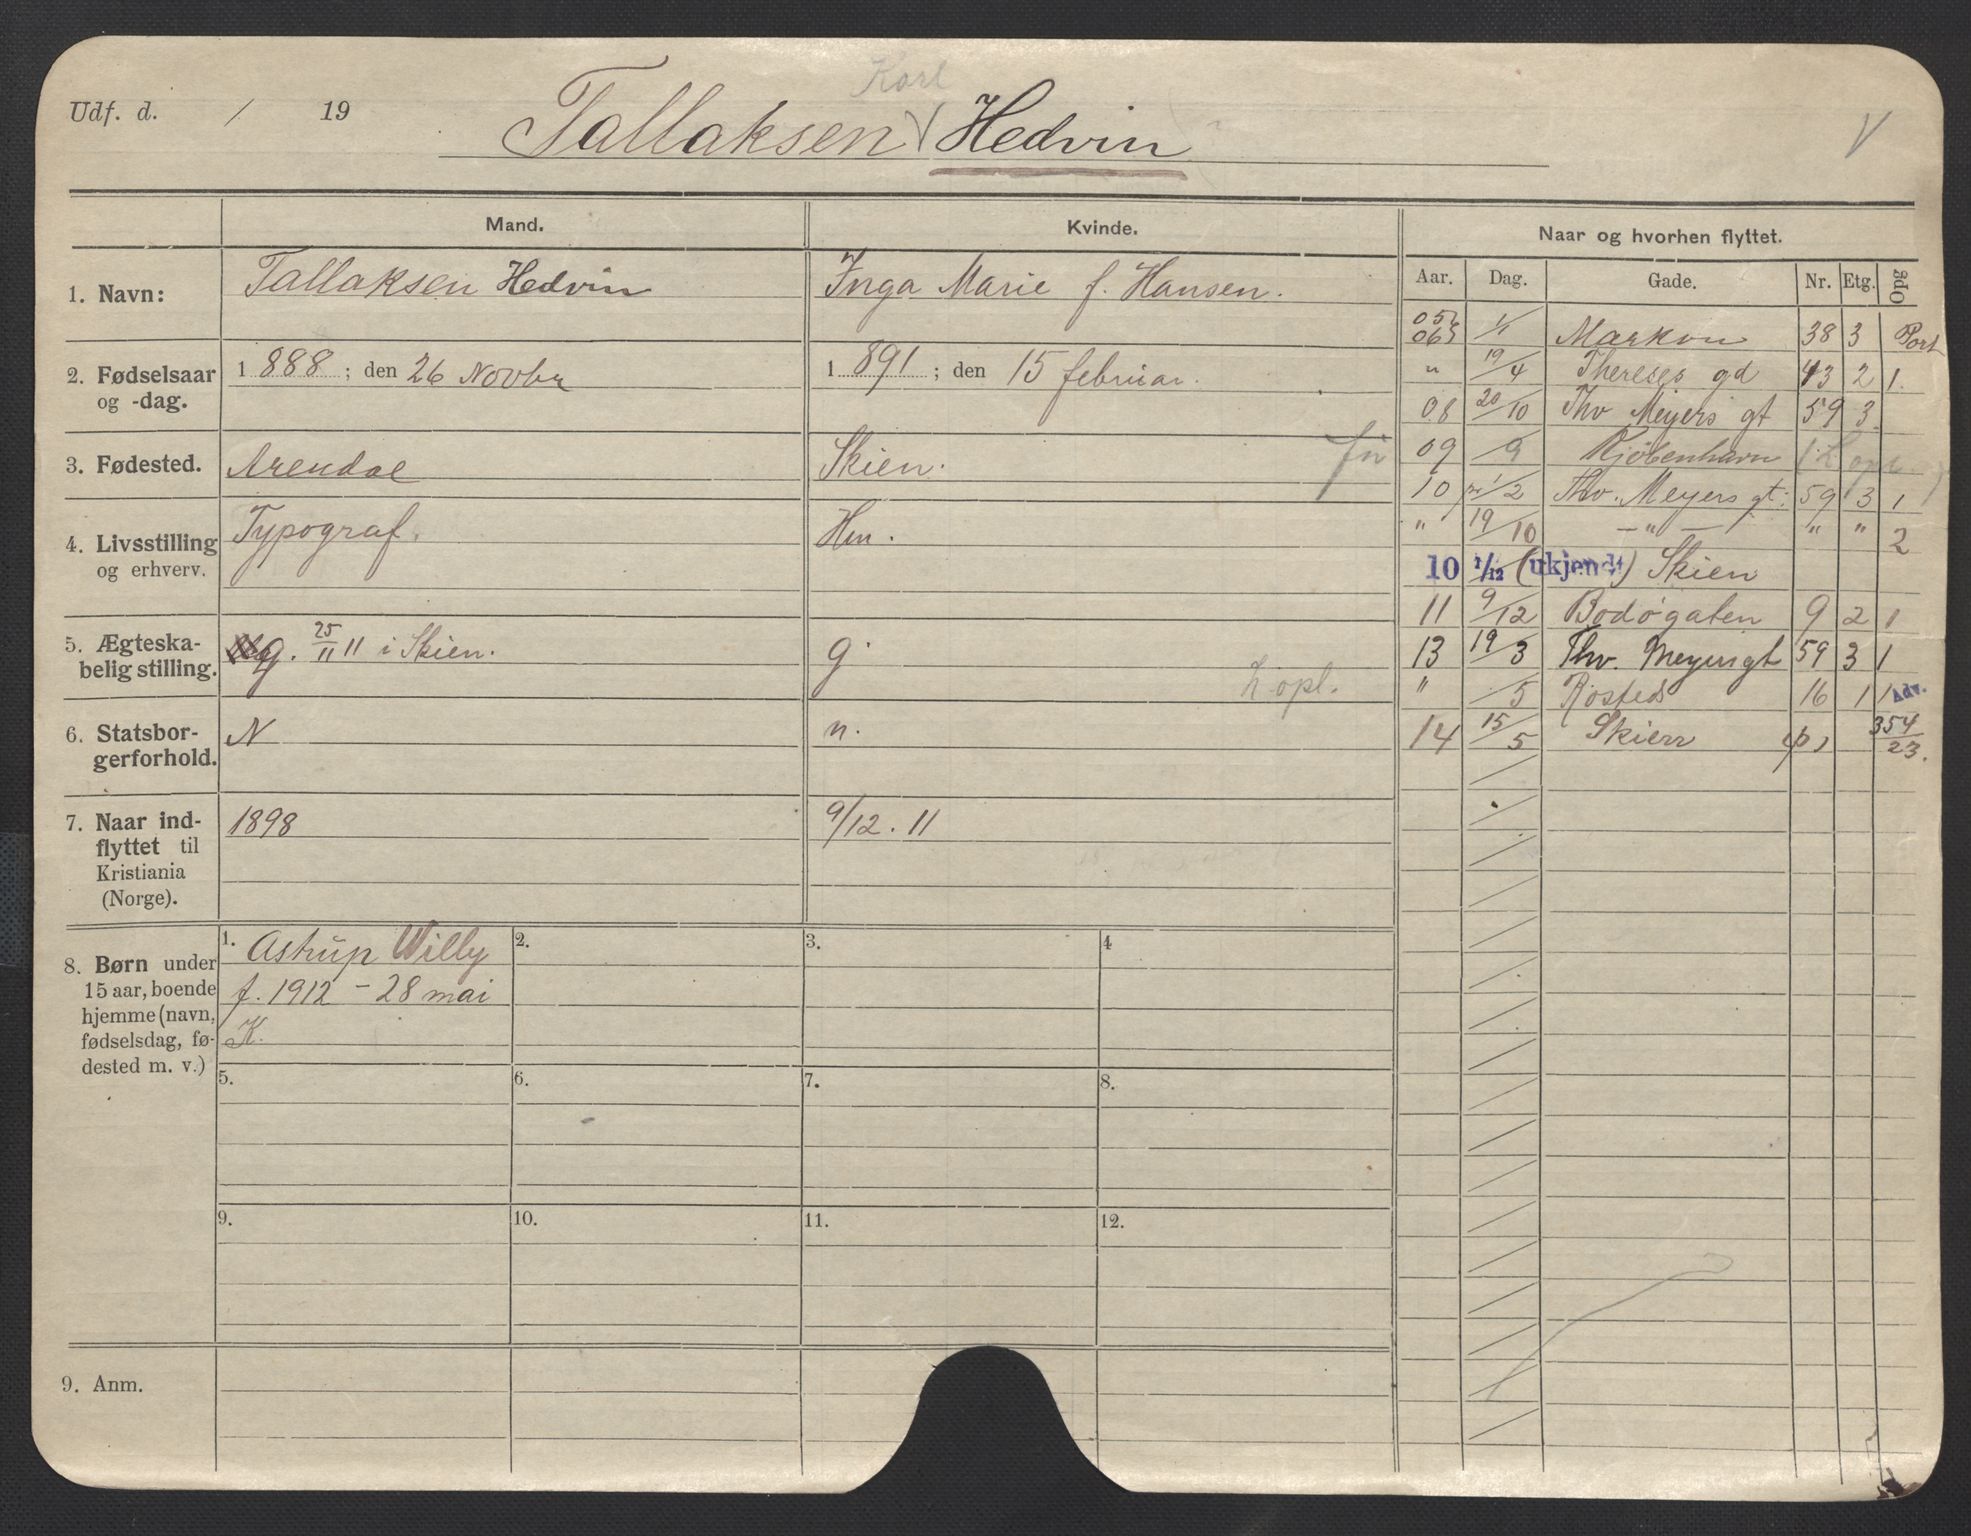 Karl
Udf. d. / 19 Tallaksen Hedvin V
Mand. Kvinde. Naar og hvorhen flyttet.
Aar. Dag. Gade. Nr. Etg. Opg
1. Navn: Tallaksen Hedvin Inga Marie f. Hansen.
2. Fødselsaar og -dag. 1888 ; den 26 Novbr 1891 ; den 15 februar.
3. Fødested. Arendal Skien.
4. Livsstilling og erhverv. Typograf. Hm.
5. Ægteskabelig stilling. g. 25/11 11 i Skien. g.
opl.
6. Statsborgerforhold. N n.
7. Naar indflyttet til Kristiania (Norge). 1898 9/12. 11
05
06 1/1 Markvn 38 3 Port
" 19/4 Thereses gd 43 2 1.
08 20/10 Thv Meyers gt 59 3.
09 /9 Kjøbenhavn
10 1/2 Thv. Meyers gt. 59 3 1
" 19/10 — " — " " 2
10 1/12 (ukjendt) Skien
11 9/12 Bodøgaten 9 2 1
13 19/3 Thv. Meyersgt 59 3 1
" /5 Rosteds 16 1 1 Adv.
14 15/5 Skien 354/23.
8. Børn under 15 aar, boende hjemme (navn, fødselsdag, fødested m. v.)
1. Astrup Willy 2. 3. 4
f. 1912 - 28 mai
K.
5. 6. 7. 8.
9. 10. 11. 12.
9. Anm.